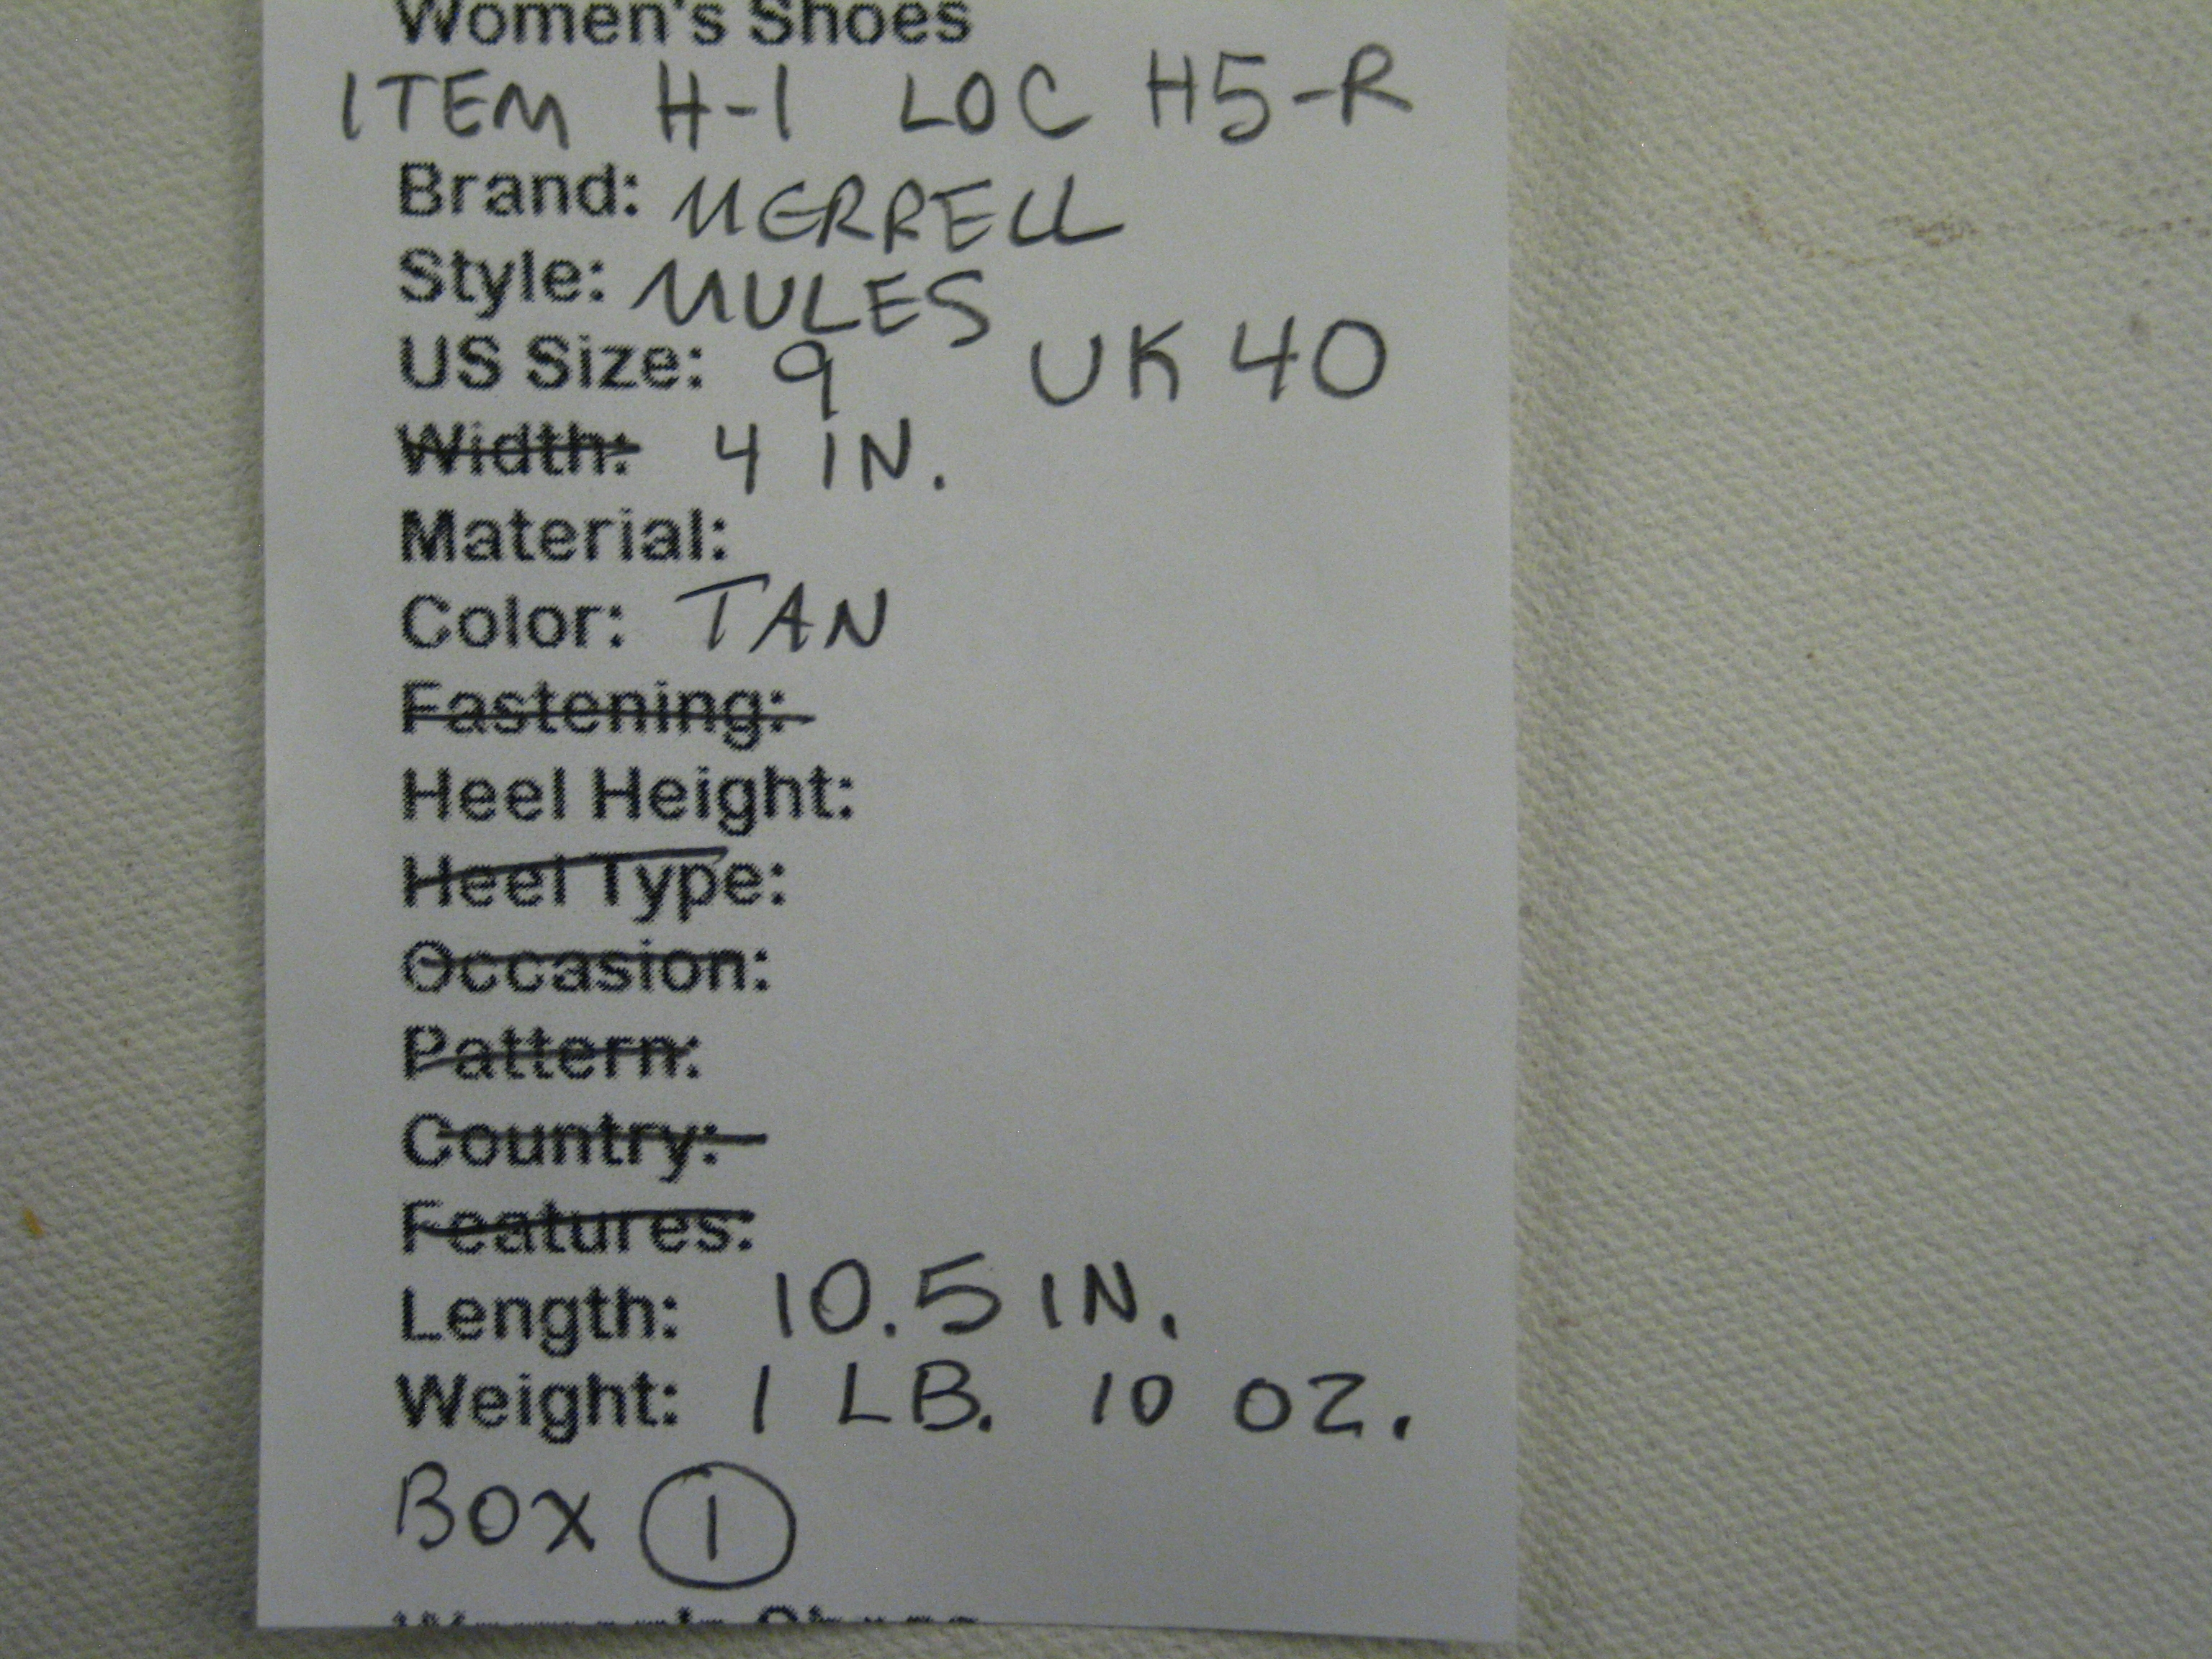 Women's Shoes
ITEM H-1 LOC H5-R
Brand: MERRELL
Style: MULES
US Size: 9 UK 40
Width: 4 IN.
Material:
Color: TAN
Fastening:
Heel Height:
Heel Type:
Occasion:
Pattern:
Country:
Features:
Length: 10.5 IN.
Weight: 1 LB. 10 OZ.
BOX 1